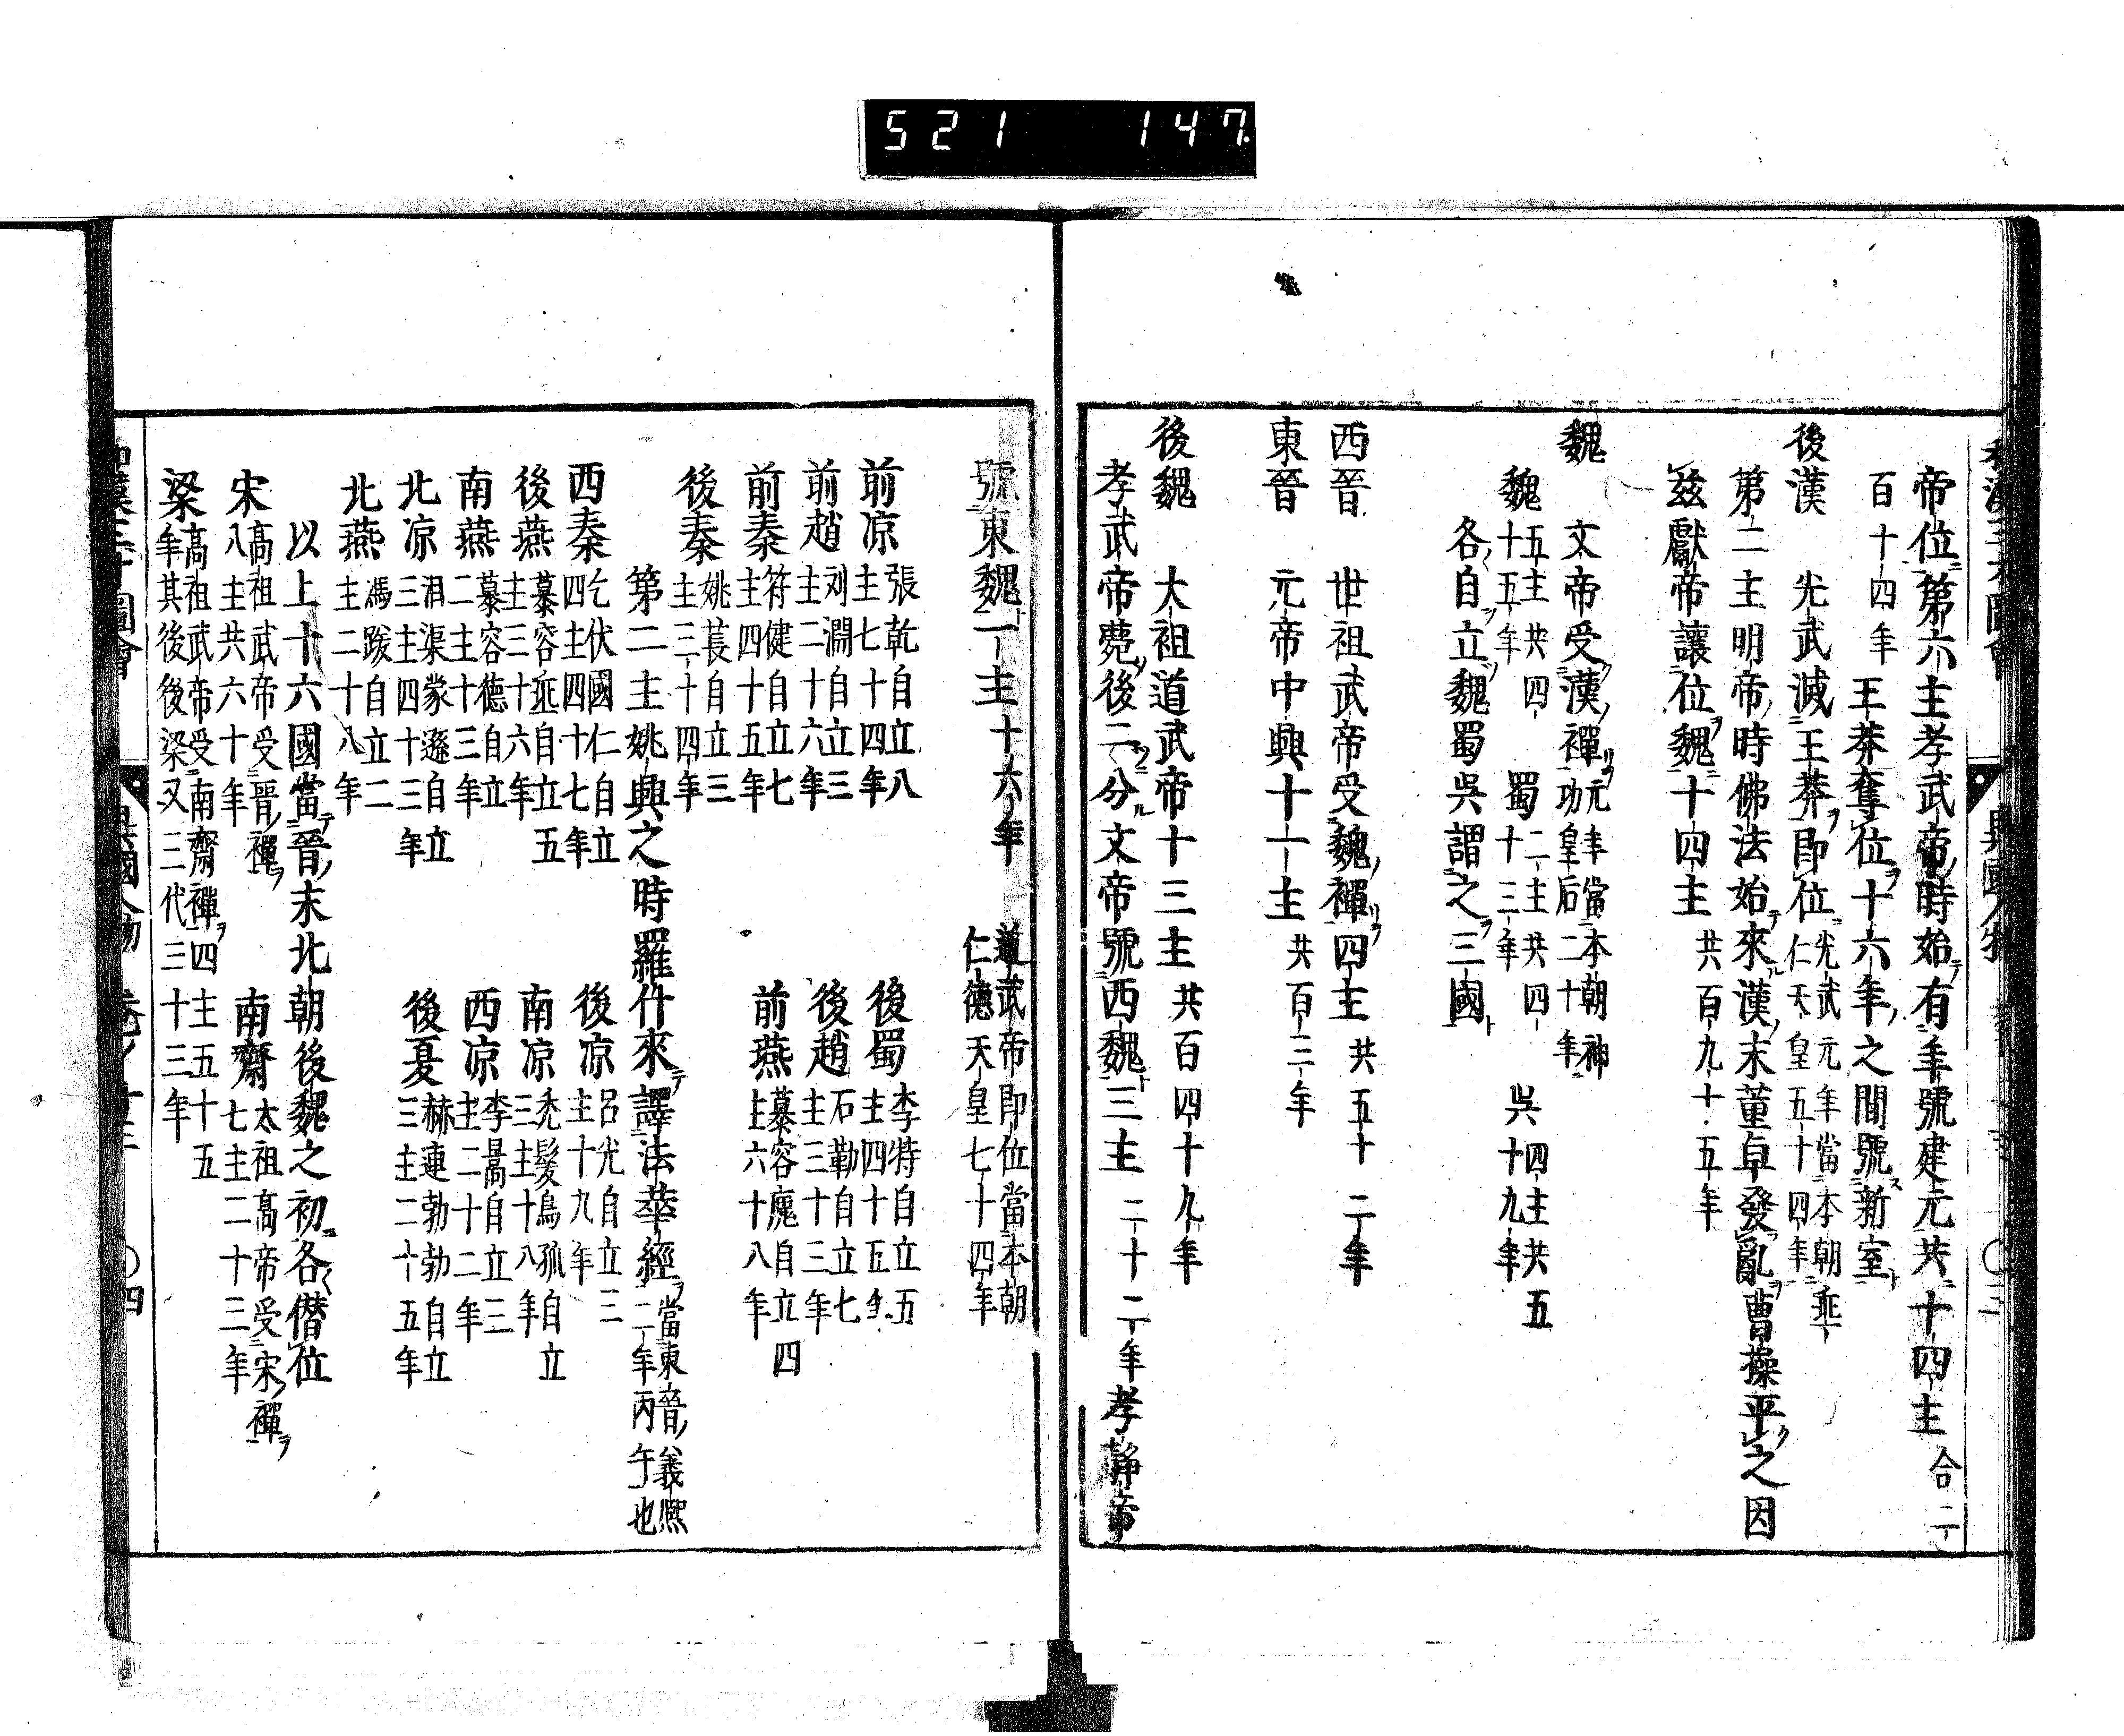 521 147
帝位第六主孝武帝時始有年號建元共十四主合二
百十四年王莽奪位十六年之間號新室
後漢 光武滅王莽即位光武元年當本朝垂仁天皇五十四年
第二主明帝時佛法始來漢末董卓發亂曹操平之因
茲獻帝讓位魏十四主共百九十五年
魏 文帝受漢禪元年當本朝神功皇后二十年
魏五主共四十五年 蜀二主共四十三年 吳四主共五十九年
各自立魏蜀吳謂之三國
西晉 世祖武帝受魏禪四主共五十二年
東晉 元帝中興十一主共百三年
後魏 大祖道武帝十三主共百四十九年
孝武帝薨後二分文帝號西魏三主二十二年孝靜帝
號東魏一主十六年 道武帝即位當本朝仁德天皇七十四年
前凉張乾自立八主七十四年 後蜀李特自立五主四十五年
前趙刘淵自立三主二十六年 後趙石勒自立七主三十三年
前秦符健自立七主四十五年 前燕慕容廆自立四主六十八年
後秦姚萇自立三主三十四年
第二主姚興之時羅什來譯法華經當東晉義熈二年丙午也
西秦乞伏國仁自立四主四十七年 後凉呂光自立三主十九年
後燕慕容垂自立五主三十六年 南凉禿髮烏孤自立三主十八年
南燕慕容德自立二主十三年 西凉李暠自立三主二十二年
北凉沮渠蒙遜自立三主四十三年 後夏赫連勃勃自立三主二十五年
北燕馮跋自立二主二十八年
以上十六國當晉末北朝後魏之初各僣位
宋高祖武帝受晉禪八主共六十年 南齊太祖高帝受宋禪七主二十三年
梁高祖武帝受南齊禪四主五十五年其後後梁又三代三十三年